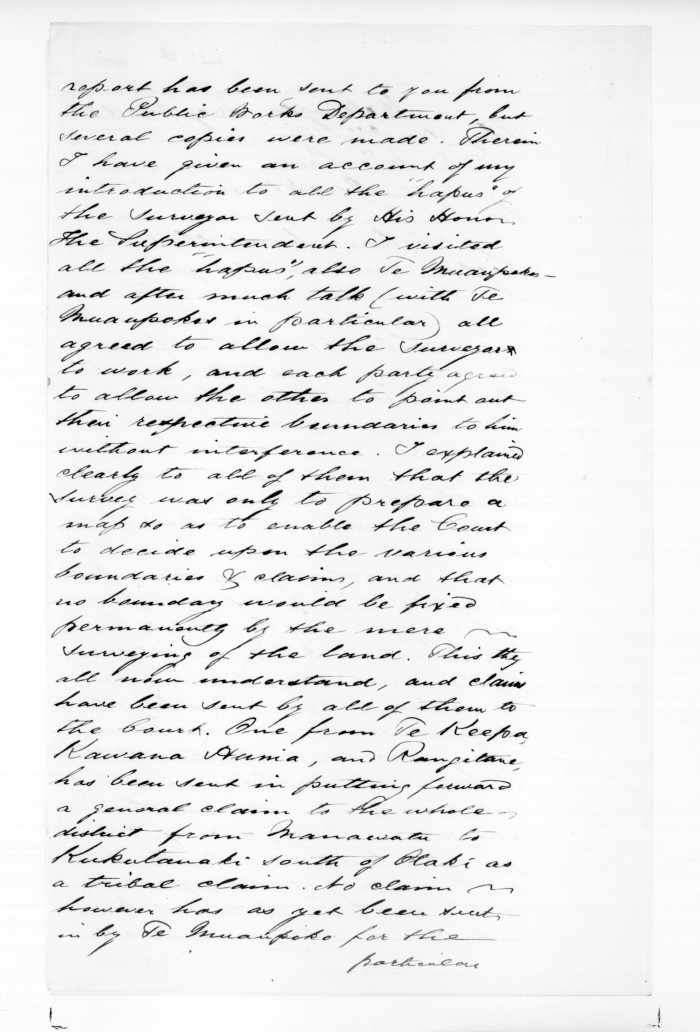 report has been sent to you from
the Public Works Department, but
several copies were made. Therein
I have given an account of my
introduction to all the "hapus" of
the Surveyor sent by His Honor
The Superintendent. I visited
all the "hapus", also Te Muaupokos
and after much talk (with Te
Muaupokos in particular) all
agreed to allow the Surveyor
to work, and each party agreed
to allow the other to point out
their respective boundaries to him
without interference. I explained
clearly to all of them that the
survey was only to prepare a
map so as to enable the Court
to decide upon the various
boundaries & claims, and that
no bounday would be fixed
permanently by the mere
surveying of the land. This they
all now understand, and claims
have been sent by all of them to
the Court. One from Te Keepa,
Kawana Hunia, and Rangitane,
has been sent in putting forward
a general claim to the whole
district from Manawatu to
Kukutauaki south of Otaki as
a tribal claim. No claim
however has as yet been sent
in by Te Muaupoko for the
particular